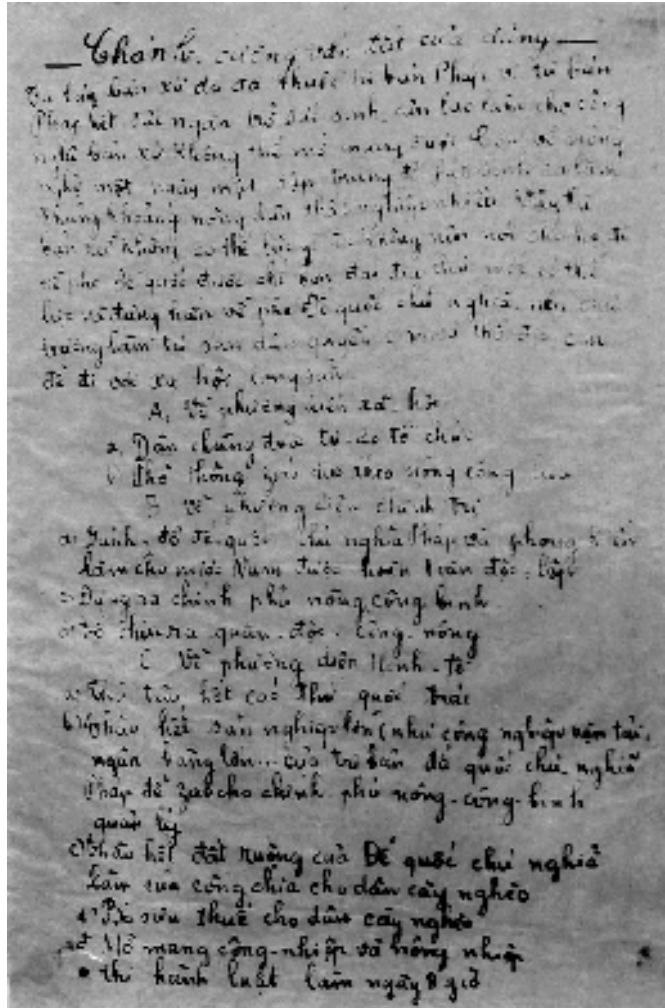 Chánh cương vắn tắt của đảng
Tư bản bản xứ đã thuộc tư bản Pháp, vì tư bản
Pháp hết sức ngăn trở sức sinh sản làm cho công
nghệ bản xứ không thể mở mang được. Còn về nông
nghệ một ngày một tập trung đã phát sinh ra lắm
khủng khoảng nông dân thất nghiệp nhiều. Vậy tư
bản xứ không có thế lực gì ta không nên nói cho họ đi
về phe đế quốc được chỉ bọn đại địa chủ mới có thế
lực và đứng hẳn về phe đế quốc chủ nghĩa nên chủ
trương làm tư sản dân quyền c.m. và thổ địa c.m.
để đi tới xã hội cộng sản
A. Về phương diện xã hội
a. Dân chúng được tự do tổ chức
b. Phổ thông giáo dục theo công nông hoá
B. Về phương diện chính trị
a. Đánh đổ đế quốc chủ nghĩa Pháp và phong kiến
Làm cho nước Nam được hoàn toàn độc lập
Dựng ra chính phủ nông công binh
Tổ chức ra quân đội công nông
C. Về phương diện kinh tế
a. Thủ tiêu hết các thứ quốc trái
b. Thâu hết sản nghiệp lớn (như công nghiệp vận tải,
ngân hàng lớn... của tư bản đế quốc chủ nghĩa
Pháp để giao cho chính phủ nông-công-binh
quản lý
c. Thâu hết đất ruộng của Đế quốc chủ nghĩa
làm của công chia cho dân cày nghèo
d. Bỏ sưu thuế cho dân cày nghèo
đ. Mở mang công-nghiệp và nông nhiệp
e. thi hành luật làm ngày 8 giờ